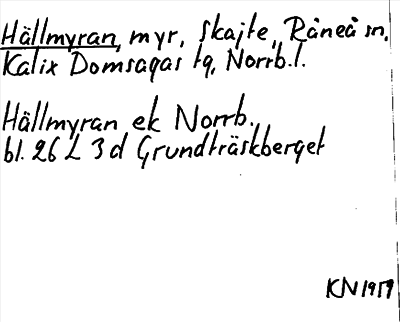 Hällmyran, myr, Skajte, Råneå sn,
Kalix Domsagas tg, Norrb.l.
Hällmyran ek Norrb.
bl. 26 L 3 d Grundträskberget
KN 1959